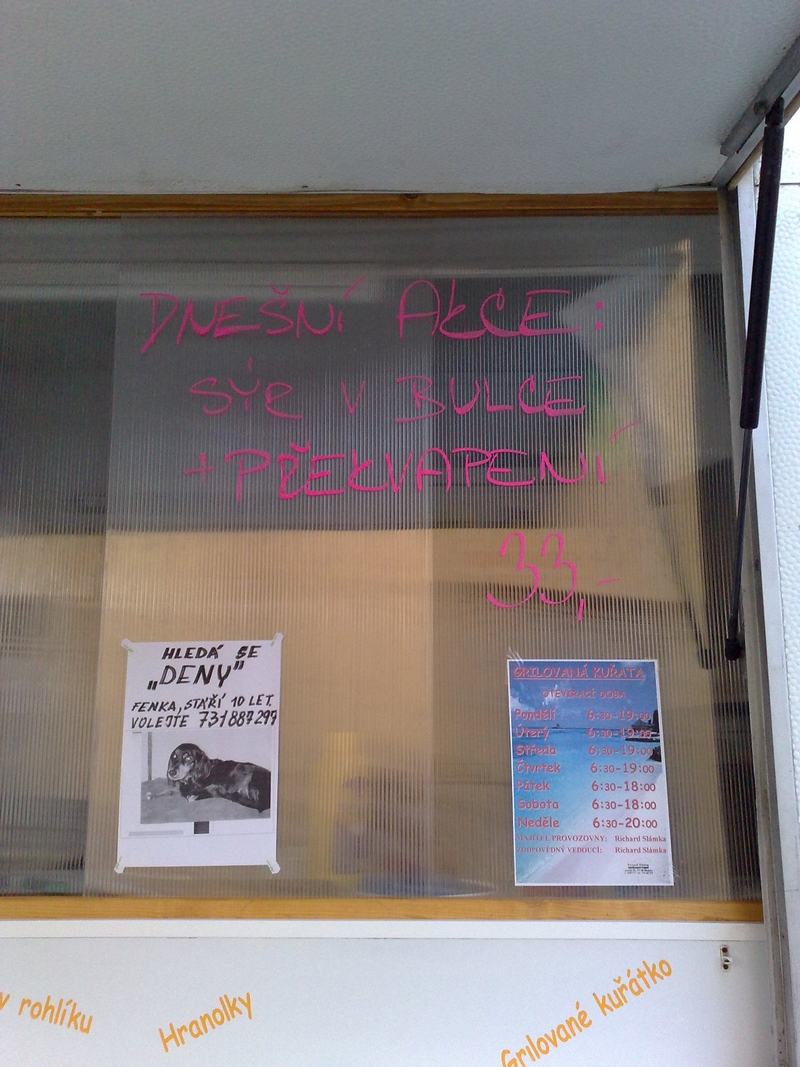 DNEŠNÍ AKCE:
SÝR V BULCE
+ PŘEKVAPENÍ
33,-
HLEDÁ SE
„DENY"
FENKA, STÁŘÍ 10 LET.
VOLEJTE 731887299
GRILOVANÁ KUŘATA
OTEVÍRACÍ DOBA
Pondělí 6:30-19:00
Úterý 6:30-19:00
Středa 6:30-19:00
Čtvrtek 6:30-19:00
Pátek 6:30-18:00
Sobota 6:30-18:00
Neděle 6:30-20:00
MAJITEL PROVOZOVNY: Richard Slámka
ZODPOVĚDNÝ VEDOUCÍ: Richard Slámka
v rohlíku
Hranolky
Grilované kuřátko